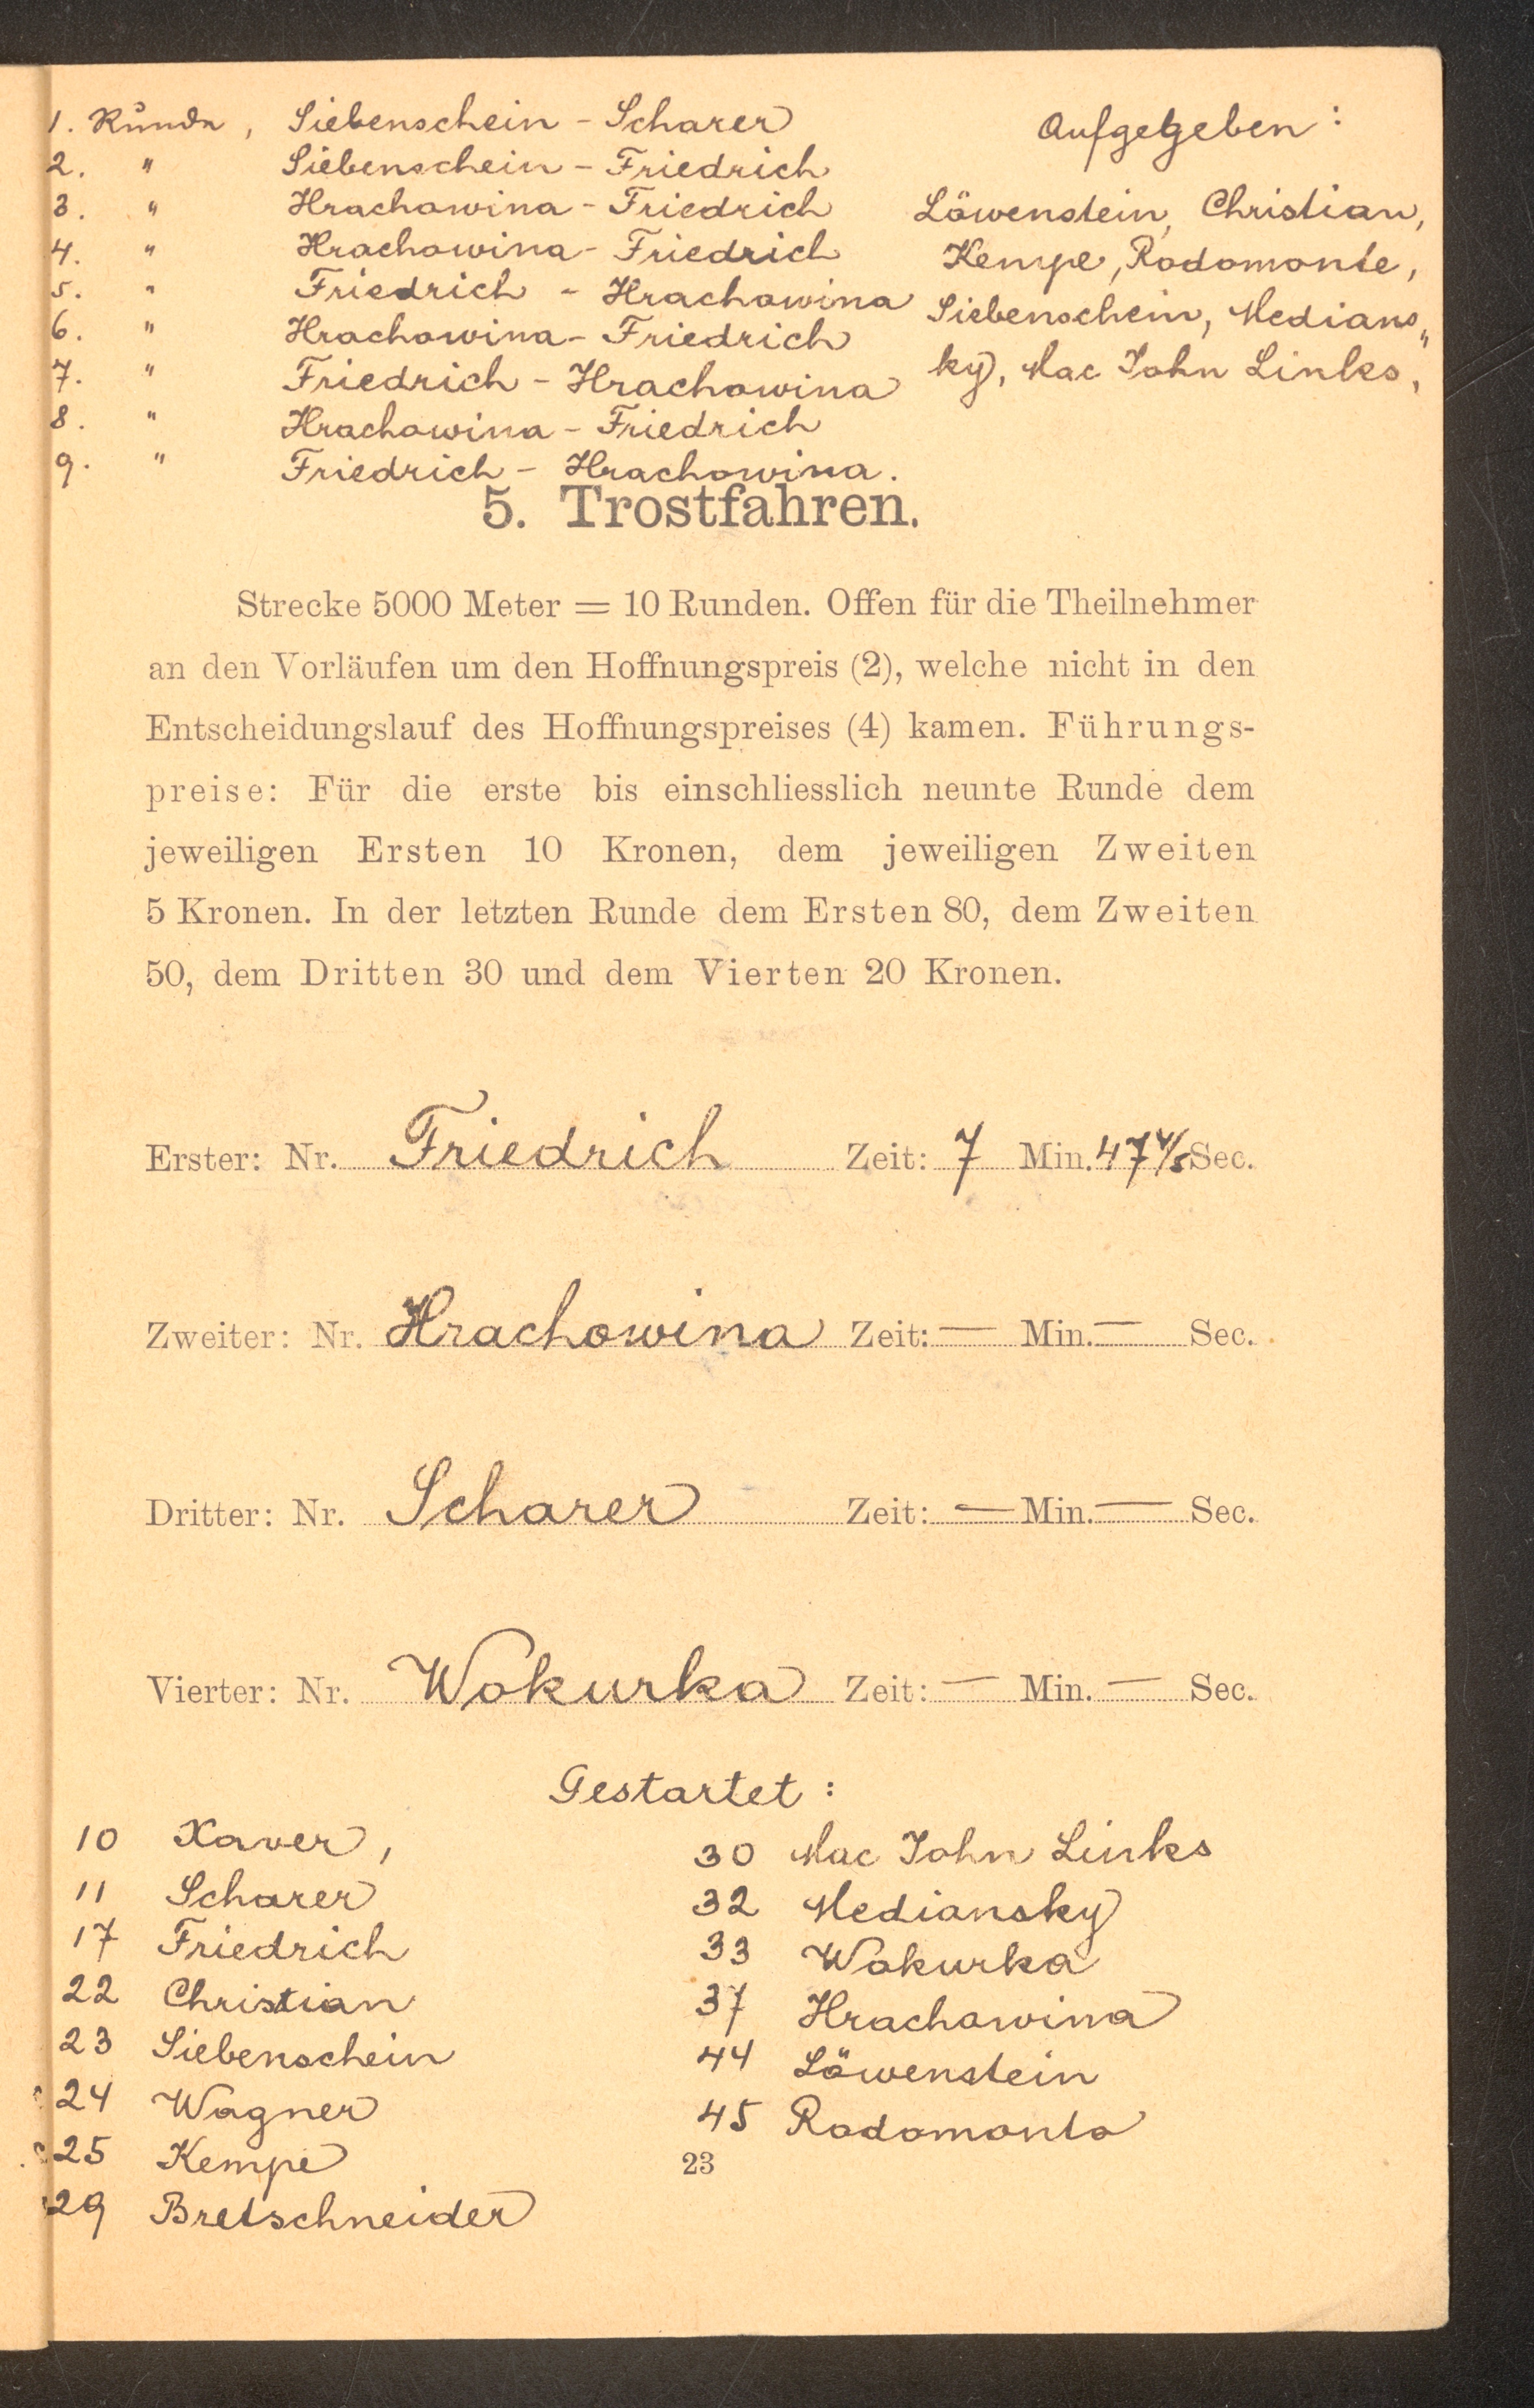 1. Runde, Siebenschein - Scharer
2. " Siebenschein - Friedrich
3. " Hrachowina - Friedrich
4. " Hrachowina - Friedrich
5. " Friedrich - Hrachowina
6. " Hrachowina - Friedrich
7. " Friedrich - Hrachowina
8. " Hrachowina - Friedrich
9. " Friedrich - Hrachowina.
Aufgegeben:
Löwenstein, Christian,
Kempe, Rodomonte,
Siebenschein, Medians„
ky, Mac John Links,
5. Trostfahren.
Strecke 5000 Meter = 10 Runden. Offen für die Theilnehmer
an den Vorläufen um den Hoffnungspreis (2), welche nicht in den
Entscheidungslauf des Hoffnungspreises (4) kamen. Führungs-
preise: Für die erste bis einschliesslich neunte Runde dem
jeweiligen Ersten 10 Kronen, dem jeweiligen Zweiten
5 Kronen. In der letzten Runde dem Ersten 80, dem Zweiten
50, dem Dritten 30 und dem Vierten 20 Kronen.
Erster: Nr. Friedrich Zeit: 7 Min. 47 4/5 Sec.
Zweiter: Nr. Hrachowina Zeit: — Min. — Sec.
Dritter: Nr. Scharer Zeit: — Min. — Sec.
Vierter: Nr. Wokurka Zeit: — Min. — Sec.
Gestartet:
10 Xaver,
11 Scharer
17 Friedrich
22 Christian
23 Siebenschein
24 Wagner
25 Kempe
29 Bretschneider
30 Mac John Links
32 Mediansky
33 Wokurka
37 Hrachowina
44 Löwenstein
45 Rodomonto
23